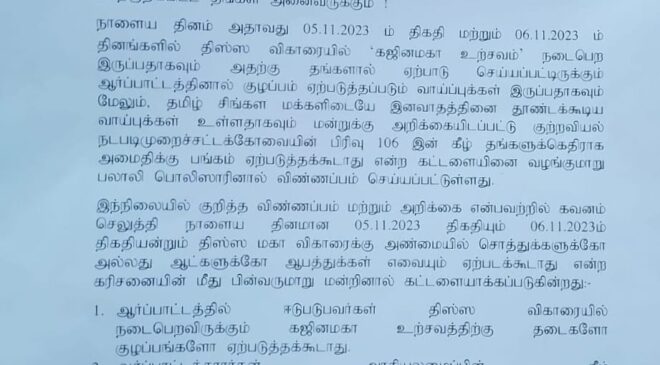 அனைவருக்கும் !
நாளைய தினம் அதாவது 05.11.2023 ம் திகதி மற்றும் 06.11.2023 ம்
தினங்களில் திஸ்ஸ விகாரையில் ‘கஜினமகா உற்சவம்’ நடைபெற
இருப்பதாகவும் அதற்கு தங்களால் ஏற்பாடு செய்யப்பட்டிருக்கும்
ஆர்ப்பாட்டத்தினால் குழப்பம் ஏற்படுத்தப்படும் வாய்ப்புக்கள் இருப்பதாகவும்
மேலும், தமிழ் சிங்கள மக்களிடையே இனவாதத்தினை தூண்டக்கூடிய
வாய்ப்புகள் உள்ளதாகவும் மன்றுக்கு அறிக்கையிடப்பட்டு குற்றவியல்
நடபடிமுறைச்சட்டக்கோவையின் பிரிவு 106 இன் கீழ் தங்களுக்கெதிராக
அமைதிக்கு பங்கம் ஏற்படுத்தக்கூடாது என்ற கட்டளையினை வழங்குமாறு
பலாலி பொலிஸாரினால் விண்ணப்பம் செய்யப்பட்டுள்ளது.
இந்நிலையில் குறித்த விண்ணப்பம் மற்றும் அறிக்கை என்பவற்றில் கவனம்
செலுத்தி நாளைய தினமான 05.11.2023 திகதியும் 06.11.2023ம்
திகதியன்றும் திஸ்ஸ மகா விகாரைக்கு அண்மையில் சொத்துக்களுக்கோ
அல்லது ஆட்களுக்கோ ஆபத்துக்கள் எவையும் ஏற்படக்கூடாது என்ற
கரிசனையின் மீது பின்வருமாறு மன்றினால் கட்டளையாக்கப்படுகின்றது:-
1. ஆர்ப்பாட்டத்தில் ஈடுபடுபவர்கள் திஸ்ஸ விகாரையில்
நடைபெறவிருக்கும் கஜினமகா உற்சவத்திற்கு தடைகளோ
குழப்பங்களோ ஏற்படுத்தக்கூடாது.